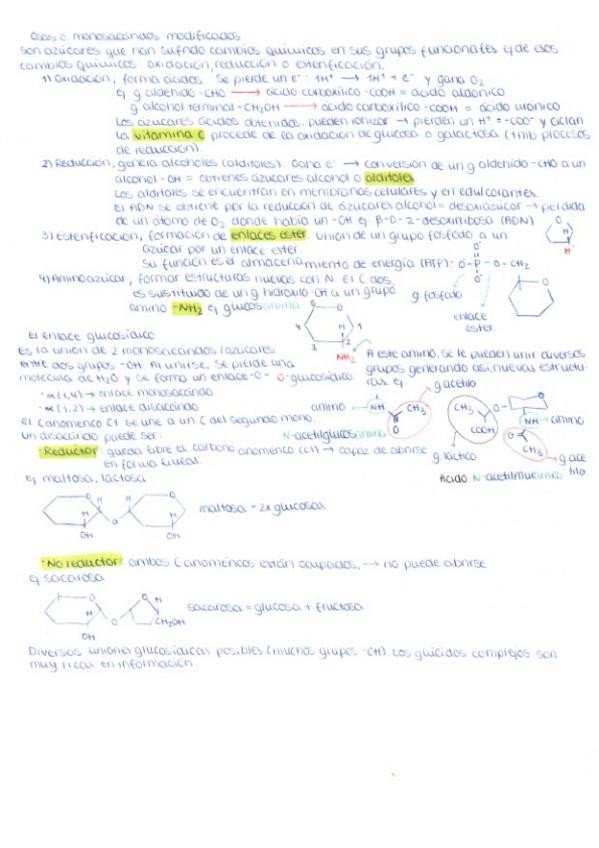 Osas o monosacáridos modificados
Son azúcares que han sufrido cambios químicos en sus grupos funcionales y de esos
cambios químicos: oxidación, reducción o esterificación.
1) Oxidación, forma ácidos. Se pierde un e⁻: 1H⁺ → 1H⁺ + e⁻ y gana O₂
ej g aldehído -CHO → ácido carboxílico -COOH = ácido aldónico
g alcohol terminal -CH₂OH → ácido carboxílico -COOH = ácido urónico
Los azúcares ácidos obtenidos, pueden ionizar → pierden un H⁺ = -COO⁻ y ciclan
La vitamina C procede de la oxidación de glucosa o galactosa (tmb procesos
de reducción).
2) Reducción, genera alcoholes (alditoles). Gana e⁻ → conversión de un g aldehído -CHO a un
alcohol -OH = obtienes azúcares alcohol o alditoles.
Los alditoles se encuentran en membranas celulares y en edulcorantes.
El ADN se obtiene por la reducción de azúcares alcohol = desoxiazúcar → pérdida
de un átomo de O₂ donde había un -OH ej β-D-2-desoxirribosa (ADN)
3) Esterificación, formación de enlaces ester. Unión de un grupo fosfato a un
azúcar por un enlace ester.
Su función es el almacenamiento de energía (ATP): O-P-O-CH₂
4) Aminoazúcar; formar estructuras nuevas con N. El C dos,
es sustituido de un g hidroxilo -OH a un grupo
amino -NH₂ ej glucosamina
g fosfato
enlace
ester
NH₂
El enlace glucosídico
Es la unión de 2 monosacáridos/azúcares
entre dos grupos -OH. Al unirse, se pierde una
molécula de H₂O y se forma un enlace -O- O-glucosídico
· α(1,4) → enlace monosacárido
· α(1,2) → enlace disacárido
El C anomérico C1 se une a un C del segundo mono.
Un disacárido puede ser:
· Reductor: queda libre el carbono anomérico (C1) → capaz de abrirse
en forma lineal.
ej maltosa, lactosa
A este amino, se le pueden unir diversos
grupos generando así, nuevas estructu-
ras. ej
g acetilo
amino NH CH₃
O
N-acetilglucosamina
CH₃ O
COOH NH amino
O CH₃
g láctico g acetilo
Ácido N-acetilmurámico
maltosa - 2x glucosas
OH OH
· No reductor: ambos C anoméricos están ocupados, → no puede abrirse
ej sacarosa
sacarosa = glucosa + fructosa
CH₂OH
OH
Diversas uniones glucosídicas posibles (muchos grupos -OH). Los glúcidos complejos son
muy ricas en información.